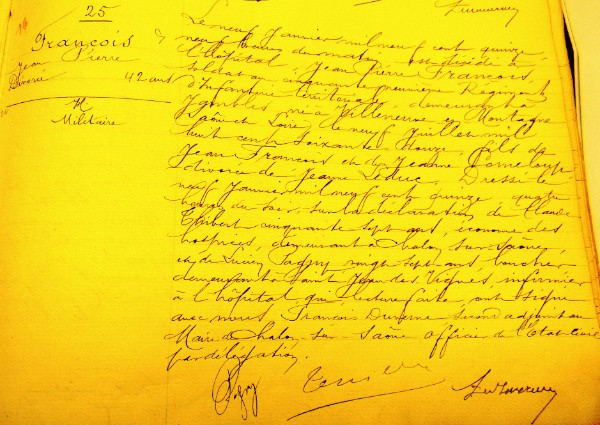 25
François
Jean Pierre
Divorcé 42 ans
M
Militaire
Le neuf Janvier mil neuf cent quinze
neuf heures du matin, est décédé à
l'hôpital, Jean Pierre François,
soldat au cinquante premier Régiment
d'Infanterie territoriale, demeurant à
né à Villeneuve en Montagne
Saône et Loire, le neuf Juillet mil
huit cent soixante douze, fils de
Jean François et de Jeanne
divorcé de Jeanne Leduc, Dressé le
neuf Janvier mil neuf cent quinze, quatre
heures du soir, sur la déclaration de Claude
cinquante sept ans, économe des
hospices, demeurant à Chalon-sur-Saône,
et de Lucien Pagny vingt sept ans boucher
demeurant à Saint Jean des Vignes, infirmier
à l'hôpital qui lecture faite, ont signé
avec nous, François second adjoint au
Maire de Chalon-sur-Saône officier de l'Etat-Civil
par délégation.
Pagny